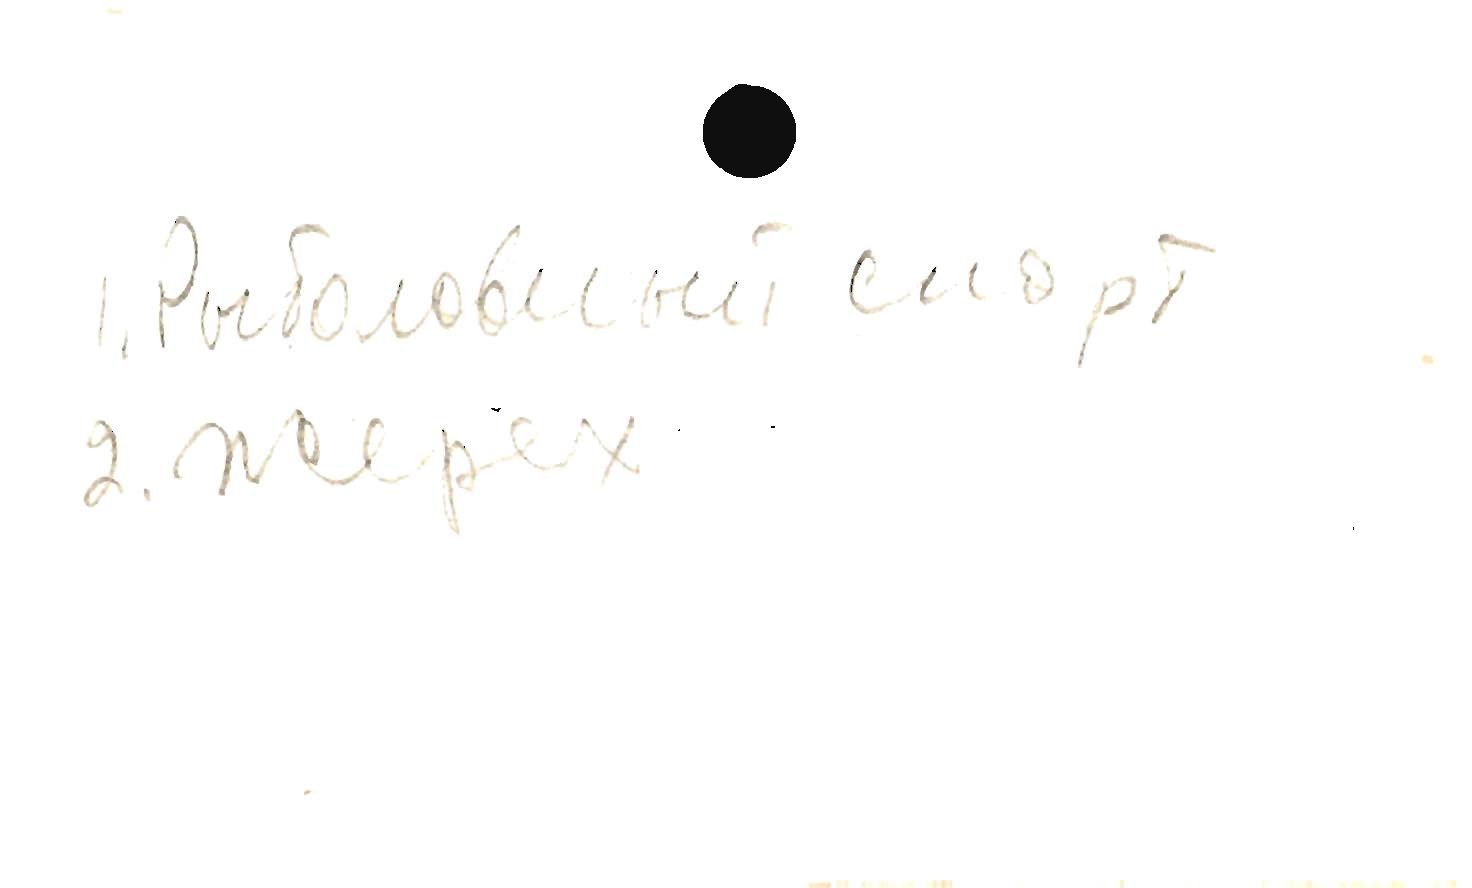 1. Рыболовный спорт
2. жерех